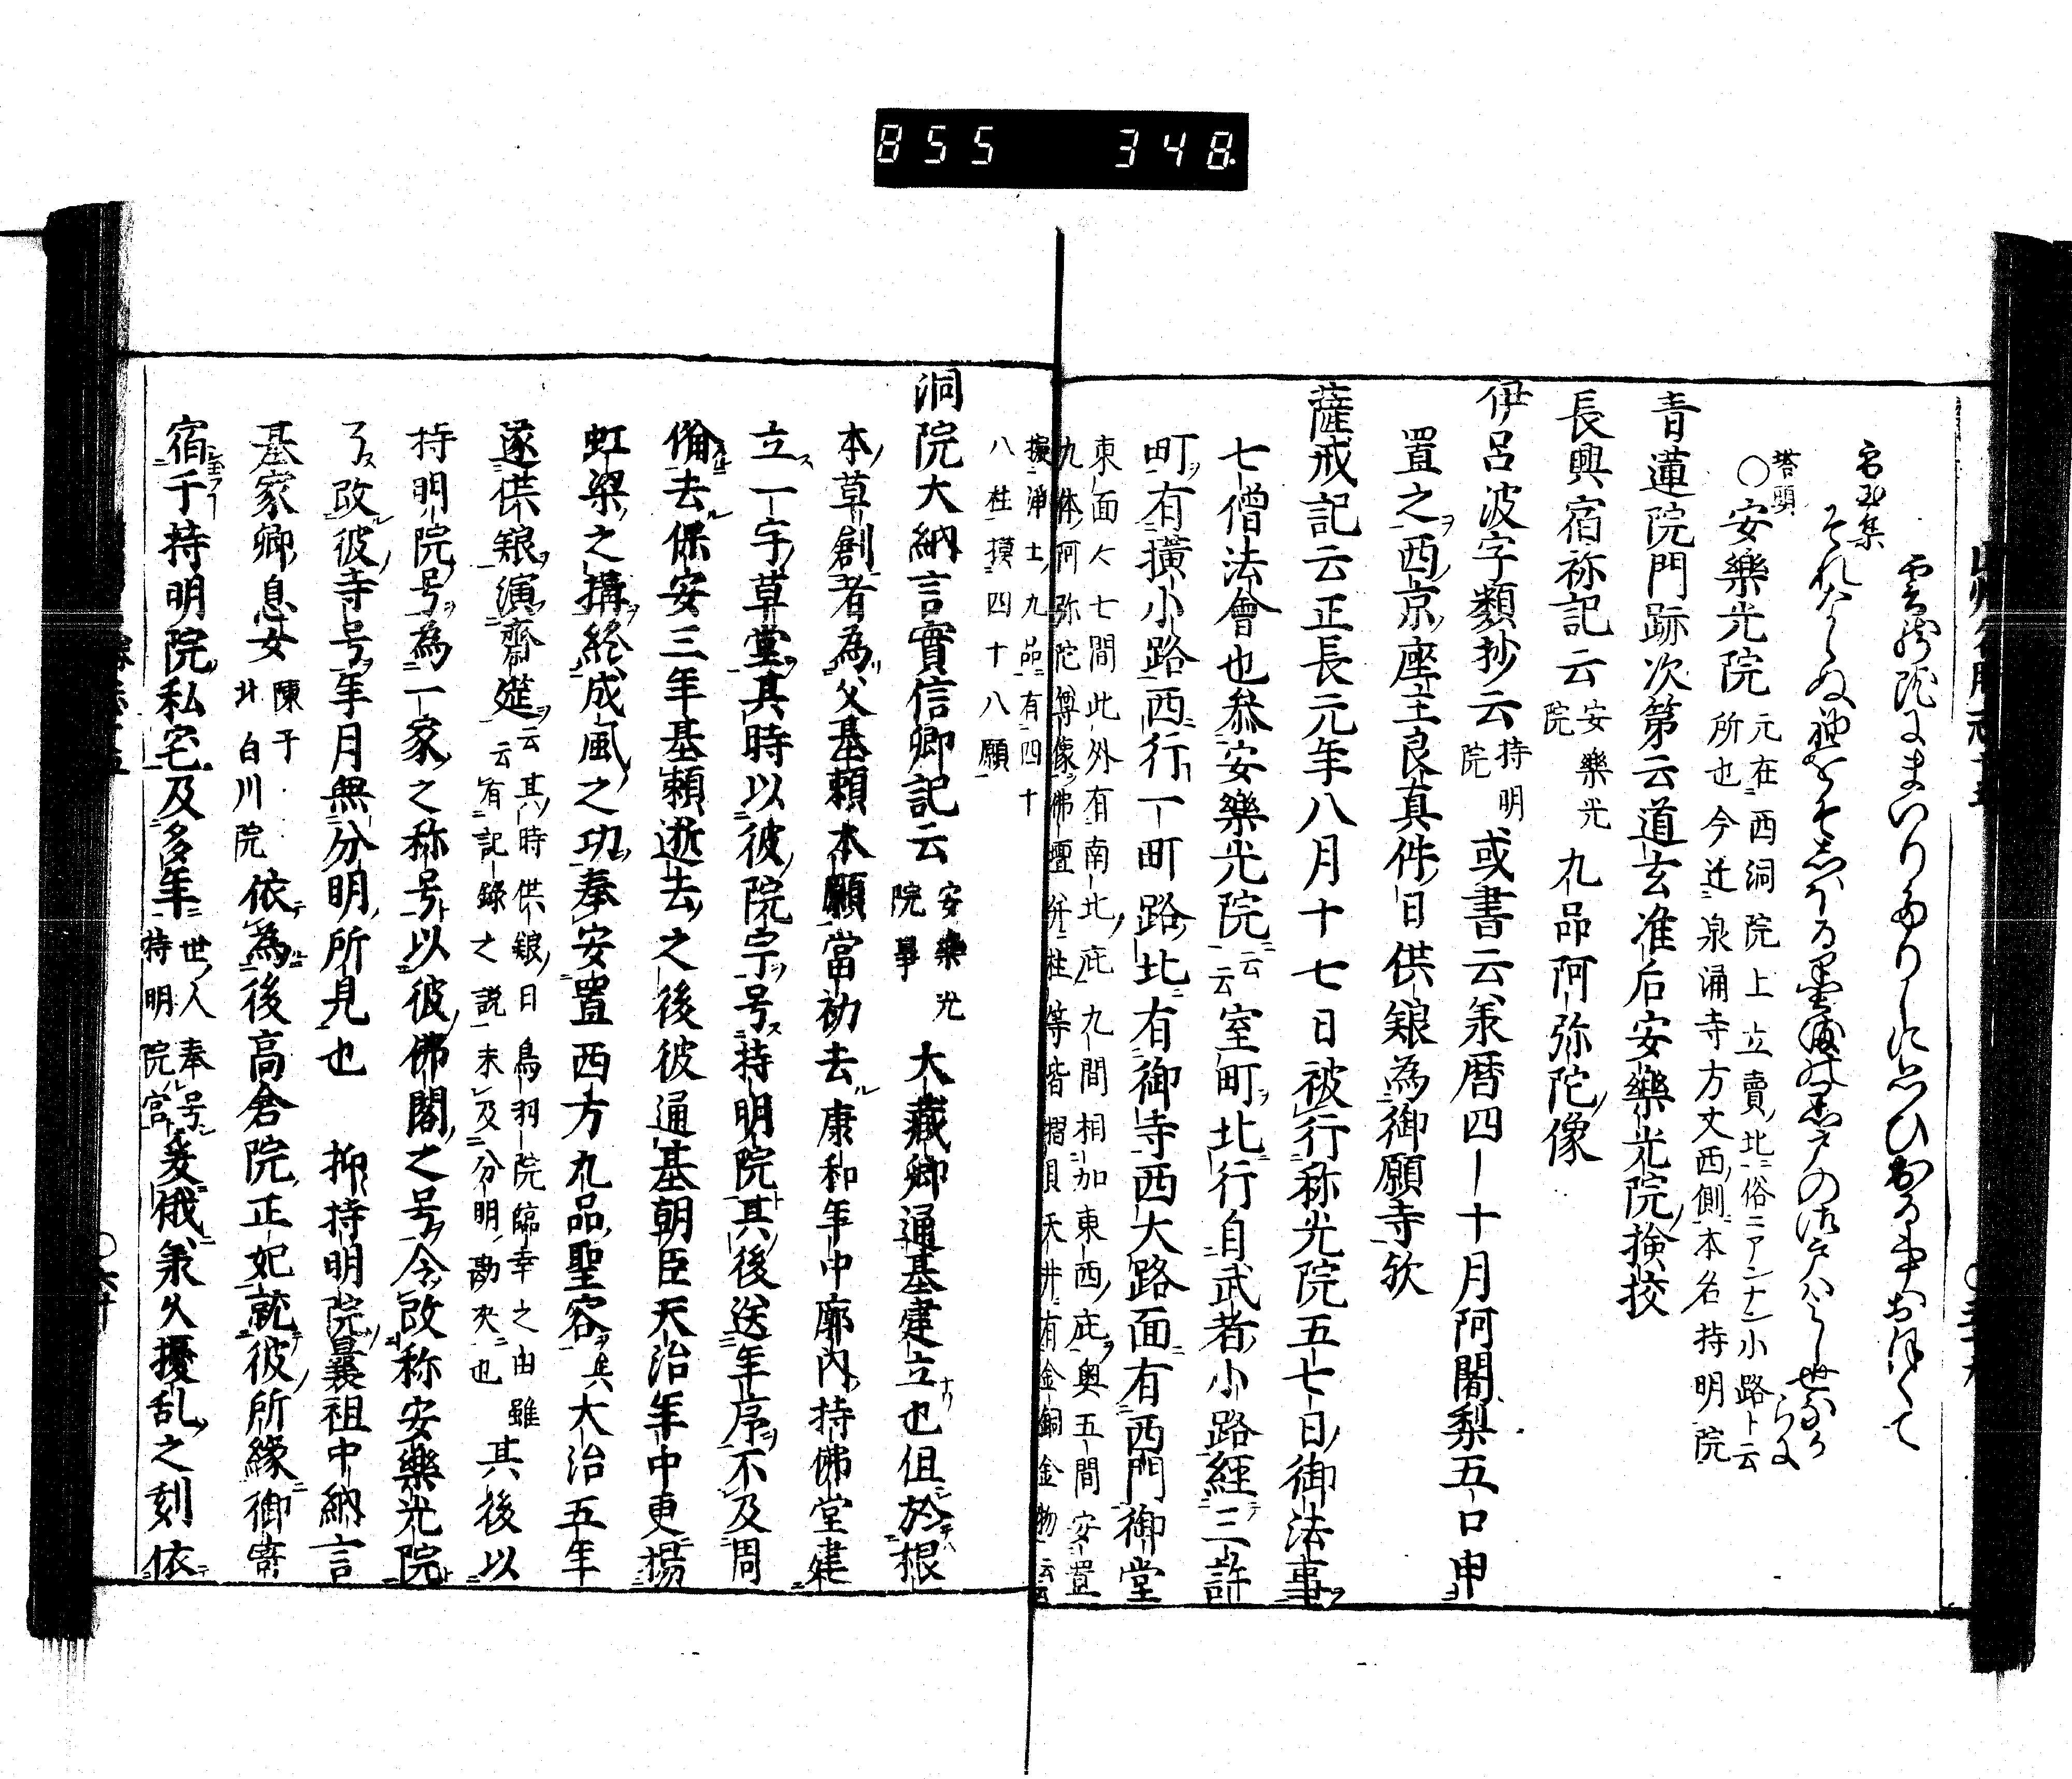 855 348
雲林院にまいりたりしにさひおる事おほくて
名所集
それならぬ
塔頭
○安樂光院 元在西洞院上立賣北俗ニアンナン小路ト云
所也今迁泉涌寺方丈西側本名持明院
青蓮院門跡次第云道玄准后安樂光院撿挍
長興宿祢記云 安樂光院 九品阿弥陀像
伊呂波字類抄云 持明院 或書云、承暦四－十月阿闍梨五口申
置之西京座主良真件日供飯為御願寺欤
薩戒記云正長元年八月十七日被行称光院五七日御法事
七僧法會也叅安樂光院云云室町北行自武者小路經三許
町有横小路西行一町路北有御寺西大路面有西門御堂
東面人七間此外有南北庇九間相加東西庇奥五間安置
九体阿弥陀尊像佛壇并柱等皆摺貝天井有金銅金物云云
擬浄土九品有四十
八柱摸四十八願
洞院大納言實信卿記云 安樂光院事 大藏卿通基建立也但於根
本草創者為父基頼本願當初去康和年中廓内持佛堂建
立一宇草堂其時以彼院宇号持明院其後送年序不及周
備去保安三年基頼逝去之後彼通基朝臣天治年中更揚
虹梁之搆終成風之功奉安置西方九品聖容矣大治五年
遂供飯演齋筵云云 其時供飯日鳥羽院臨幸之由雖
有記録之説未及分明勘决也 其後以
持明院号為一家之称号以彼佛閣之号令改称安樂光院
了改彼寺号年月無分明所見也 抑持明院曩祖中納言
基家卿息女 陳子北白川院 依為後高倉院正妃就彼所縁御寄
宿于持明院私宅及多年 世人奉号持明院宮 爰俄承久擾乱之刻依